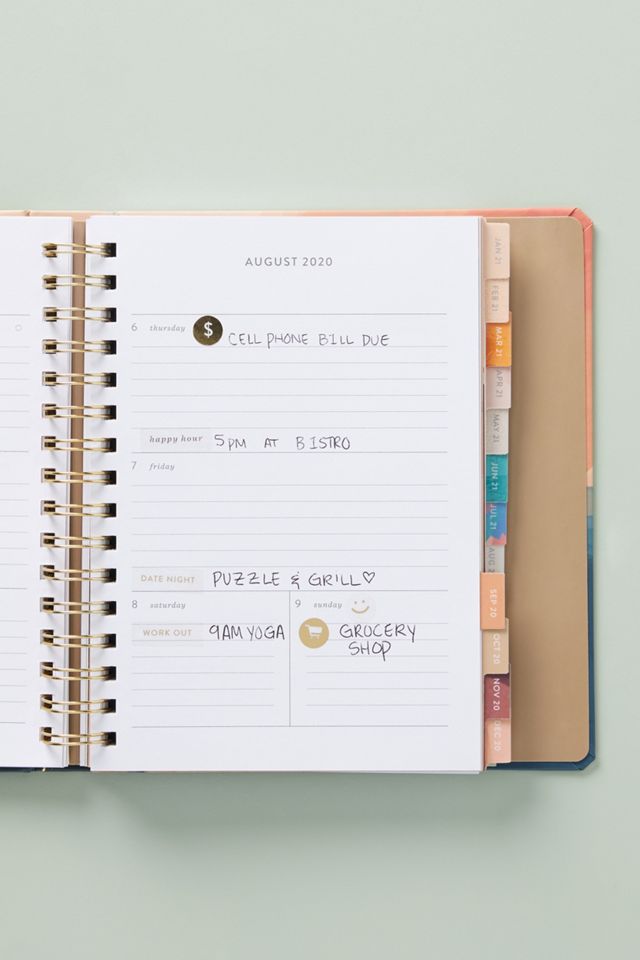 AUGUST 2020
6 thursday $ CELL PHONE BILL DUE
happy hour 5PM AT BISTRO
7 friday
DATE NIGHT PUZZLE & GRILL♡
8 saturday
WORK OUT 9AM YOGA
9 sunday
GROCERY
SHOP
JAN 21
FEB 21
MAR 21
APR 21
MAY 21
JUN 21
JUL 21
AUG
SEP 20
OCT 20
NOV 20
DEC 20